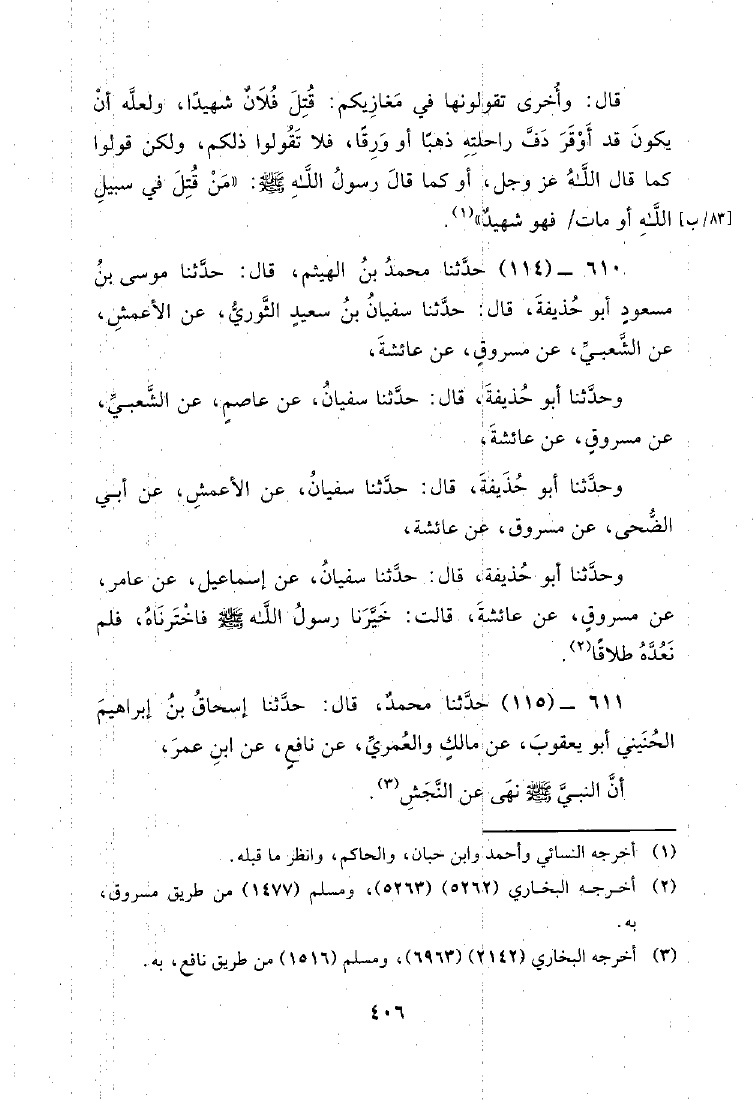 قال: وأُخرى تقولونها في مَغازِيكم: قُتِلَ فُلَانٌ شهيدًا، ولعلَّه أنْ
يكونَ قد أَوْقَرَ دَفَّ راحلتِهِ ذهبًا أو وَرِقًا، فلا تَقُولوا ذلكم، ولكن قولوا
كما قال اللَّهُ عز وجل، أو كما قالَ رسولُ اللَّهِ ﷺ: «مَنْ قُتِلَ في سبيلِ
[٨٣/ب] اللَّهِ أو مات/ فهو شهيدٌ»(١).
٦١٠ ــ (١١٤) حدَّثنا محمدُ بنُ الهيثم، قال: حدَّثنا موسى بنُ
مسعودٍ أبو حُذيفةَ، قال: حدَّثنا سفيانُ بنُ سعيدٍ الثَّوريُّ، عن الأعمشِ،
عن الشَّعبـيِّ، عن مسروقٍ، عن عائشةَ،
وحدَّثنا أبو حُذيفةَ، قال: حدَّثنا سفيانُ، عن عاصمٍ، عن الشَّعبـيِّ،
عن مسروقٍ، عن عائشةَ،
وحدَّثنا أبو حُذَيفةَ، قال: حدَّثنا سفيانُ، عن الأعمشِ، عن أبـي
الضُّحى، عن مسروق، عن عائشة،
وحدَّثنا أبو حُذيفة، قال: حدَّثنا سفيانُ، عن إسماعيل، عن عامر،
عن مسروقٍ، عن عائشةَ، قالت: خَيَّرَنا رسولُ اللَّه ﷺ فاخْتَرناهُ، فلم
نَعُدَّهُ طلاقًا(٢).
٦١١ ــ (١١٥) حدَّثنا محمدٌ، قال: حدَّثنا إسحاقُ بنُ إبراهيمَ
الحُنَيني أبو يعقوبَ، عن مالكٍ والعُمريِّ، عن نافعٍ، عن ابنِ عمرَ،
أنَّ النبـيَّ ﷺ نهَى عن النَّجَشِ(٣).
(١) أخرجه النسائي وأحمد وابن حبان، والحاكم، وانظر ما قبله.
(٢) أخـرجـه البخـاري (٥٢٦٢) (٥٢٦٣)، ومسلم (١٤٧٧) من طريق مسروق،
به.
(٣) أخرجه البخاري (٢١٤٢) (٦٩٦٣)، ومسلم (١٥١٦) من طريق نافع، به.
٤٠٦